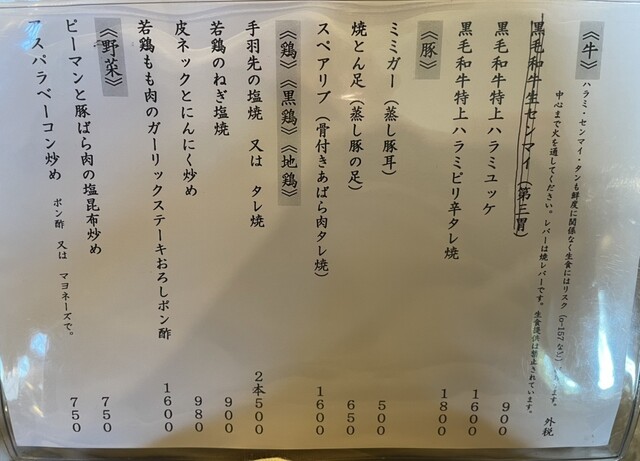 《牛》
ハラミ・センマイ・タンも鮮度に関係なく生食にはリスク（o-157など）、
ます。
中心まで火を通してください。レバーは焼レバーです。生食提供は禁止されています。
外税
黒毛和牛生センマイ（第三胃） 900
黒毛和牛特上ハラミユッケ 1600
黒毛和牛特上ハラミピリ辛タレ焼 1800
《豚》
ミミガー（蒸し豚耳） 500
焼とん足（蒸し豚の足） 650
スペアリブ（骨付きあばら肉タレ焼） 1600
《鶏》《黒鶏》《地鶏》
手羽先の塩焼 又は タレ焼 2本500
若鶏のねぎ塩焼 900
皮ネックとにんにく炒め 980
若鶏もも肉のガーリックステーキおろしポン酢 1600
《野菜》
ピーマンと豚ばら肉の塩昆布炒め 750
アスパラベーコン炒め ポン酢 又は マヨネーズで。 750